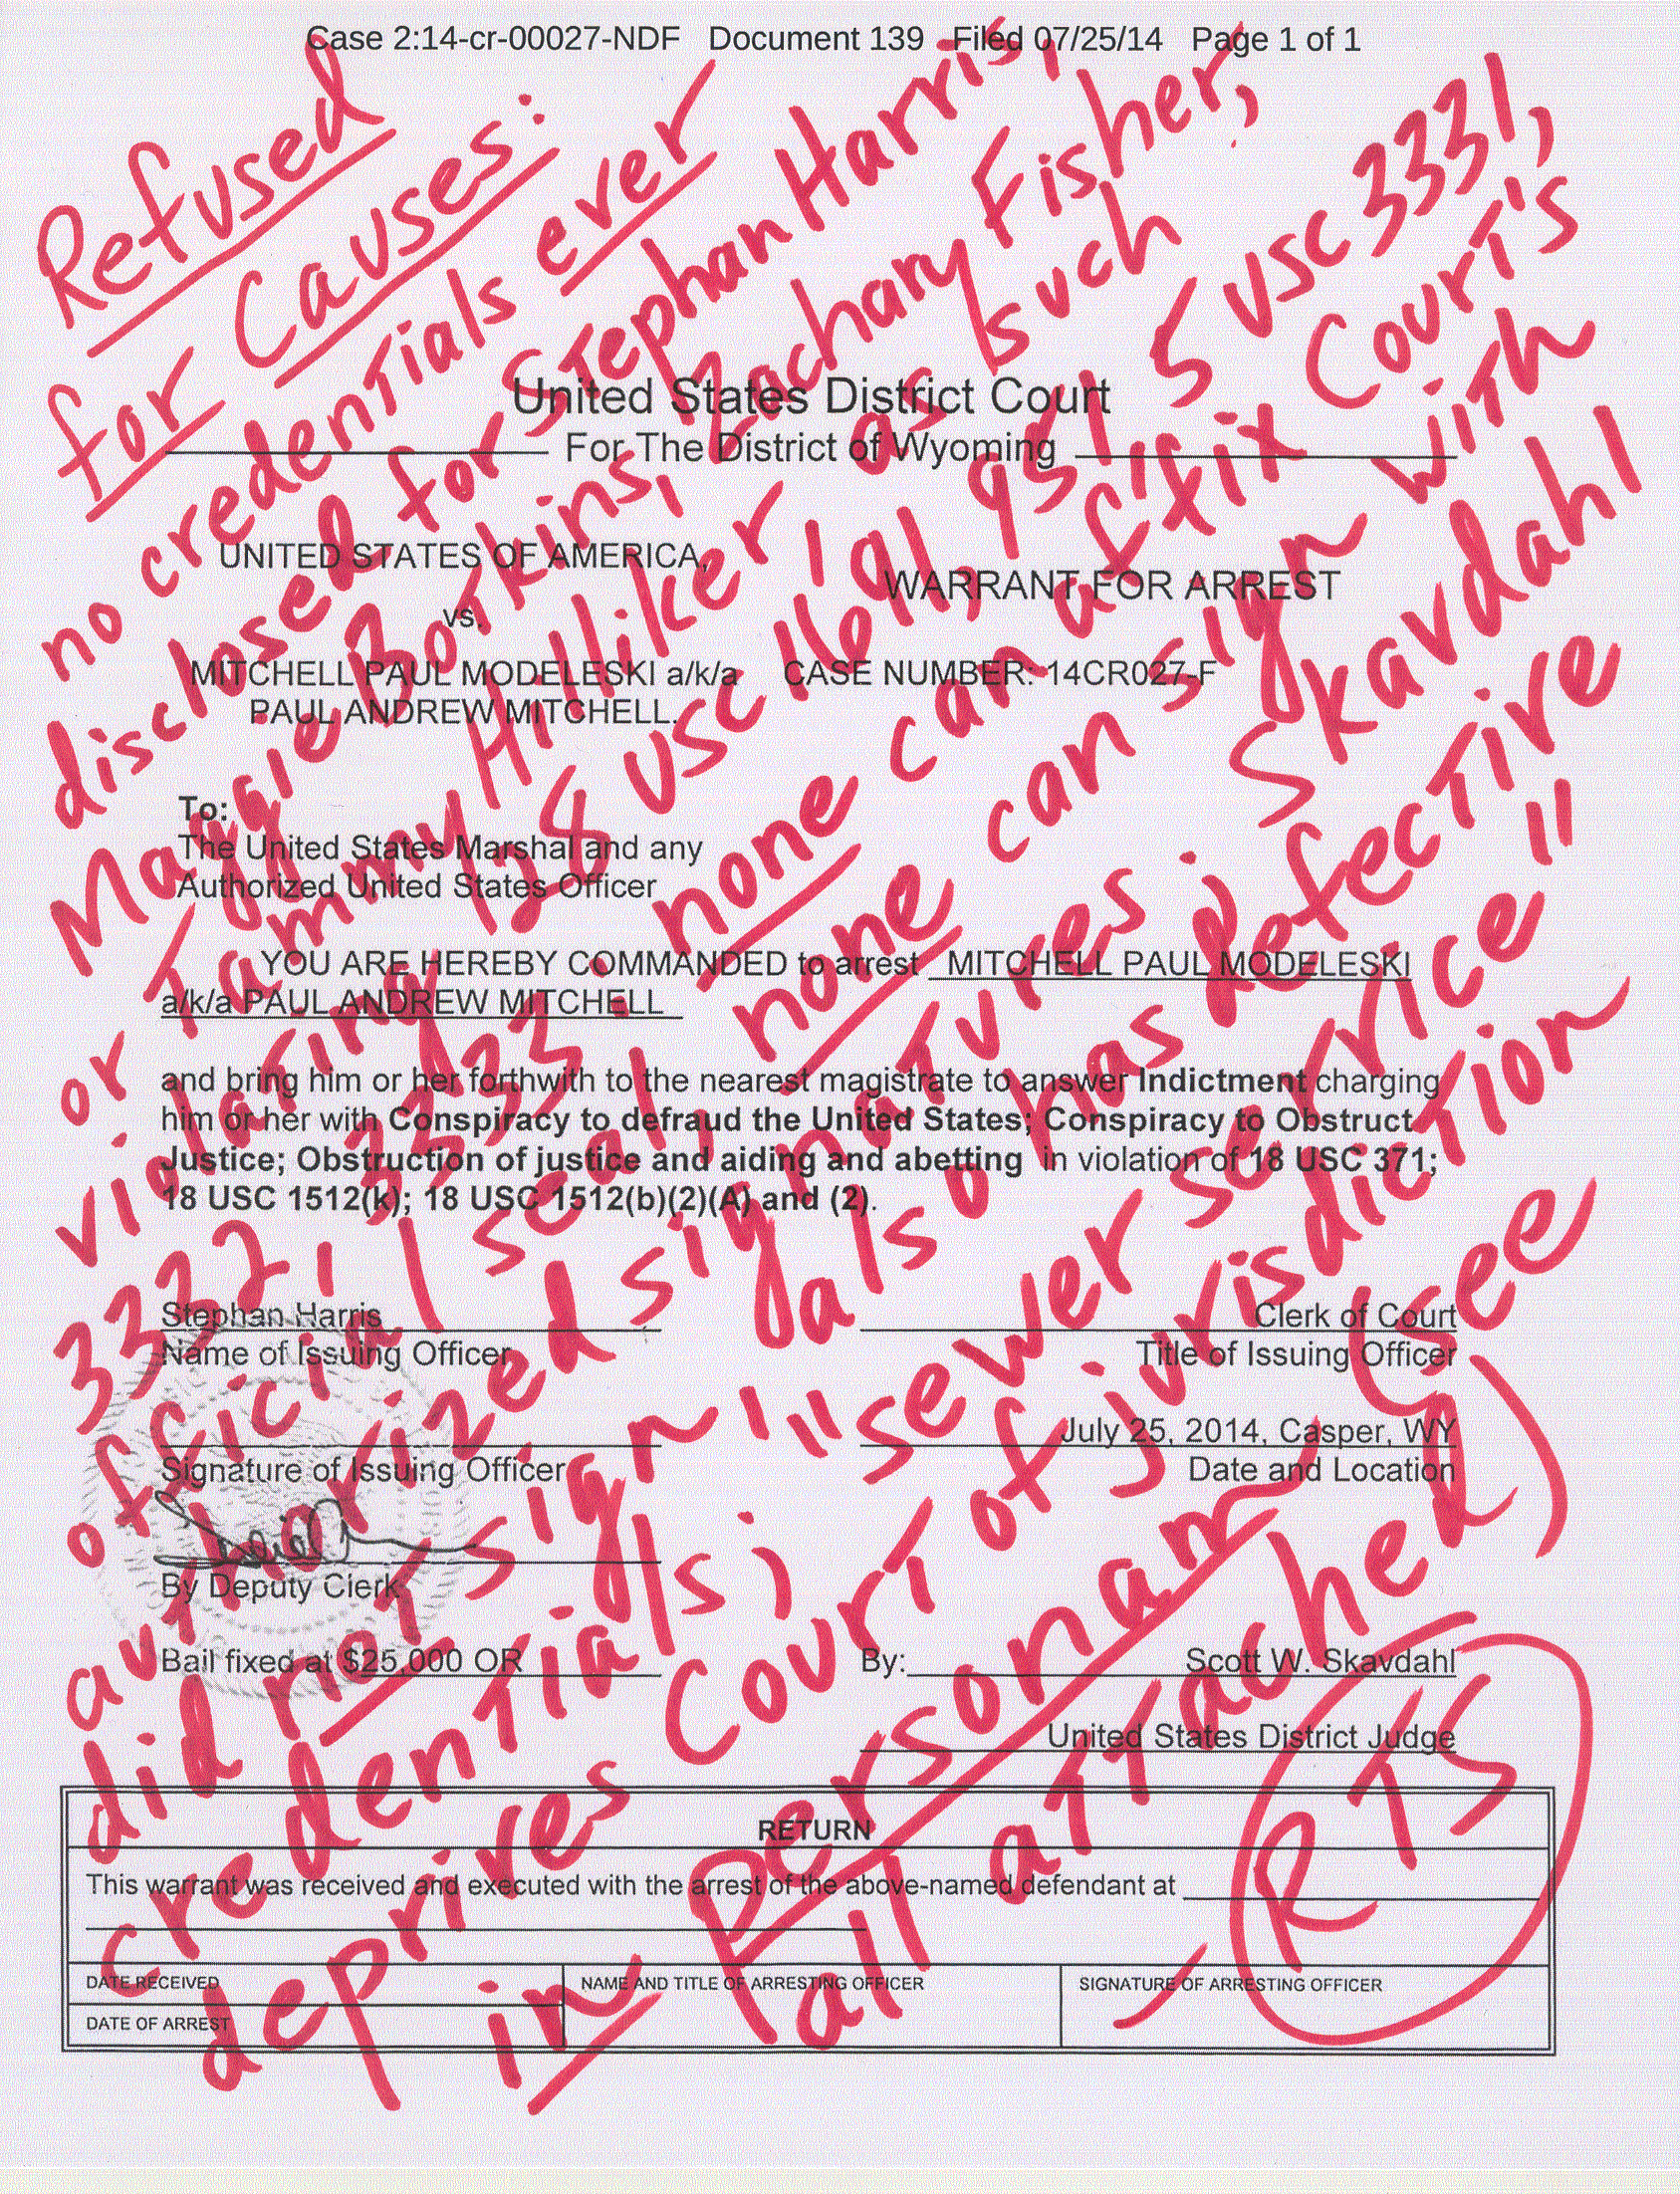 Case 2:14-cr-00027-NDF Document 139 Filed 07/25/14 Page 1 of 1
Refused
for Causes:
no credentials ever
disclosed for Stephan Harris,
Maggie Botkins, Zachary Fisher,
or Tammy Hilliker as such
violating 28 USC 1691, 951, 5 USC 3331,
3332, 3333; none can affix Court's
official seal, none can sign with
authorized signatures; Skavdahl
did not sign, also has defective
credentials; "sewer service"
deprives Court of jurisdiction
in personam (see
all attached)
RTS
United States District Court
For The District of Wyoming
UNITED STATES OF AMERICA,
vs.
MITCHELL PAUL MODELESKI a/k/a
PAUL ANDREW MITCHELL.
WARRANT FOR ARREST
CASE NUMBER: 14CR027-F
To:
The United States Marshal and any
Authorized United States Officer
YOU ARE HEREBY COMMANDED to arrest MITCHELL PAUL MODELESKI
a/k/a PAUL ANDREW MITCHELL
and bring him or her forthwith to the nearest magistrate to answer Indictment charging
him or her with Conspiracy to defraud the United States; Conspiracy to Obstruct
Justice; Obstruction of justice and aiding and abetting in violation of 18 USC 371;
18 USC 1512(k); 18 USC 1512(b)(2)(A) and (2).
Stephan Harris
Name of Issuing Officer
Clerk of Court
Title of Issuing Officer
Signature of Issuing Officer
July 25, 2014, Casper, WY
Date and Location
By Deputy Clerk
Bail fixed at $25,000 OR
By: Scott W. Skavdahl
United States District Judge
RETURN
This warrant was received and executed with the arrest of the above-named defendant at
DATE RECEIVED
NAME AND TITLE OF ARRESTING OFFICER
SIGNATURE OF ARRESTING OFFICER
DATE OF ARREST